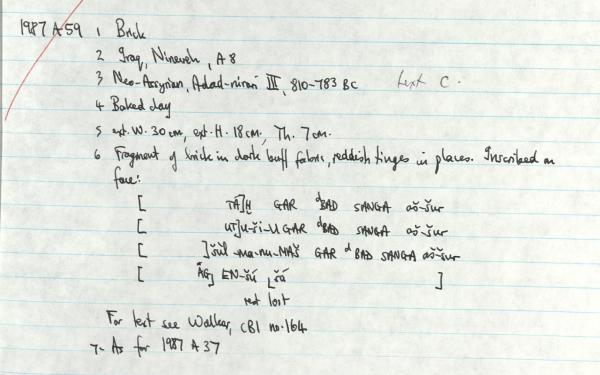 1987 A 59 1 Brick
2 Iraq, Nineveh, A 8
3 Neo-Assyrian, Adad-nirari III, 810-783 BC text C.
4 Baked clay
5 ext. W. 30 cm, ext. H. 18 cm, Th. 7 cm.
6 Fragment of brick in dark buff fabric, reddish tinges in places. Inscribed on
face:
[ TA]Ḫ GAR dBAD SANGA aš-šur
[ UT]U-ši-U GAR dBAD SANGA aš-šur
[ ]šùl-ma-nu-MAŠ GAR dBAD SANGA aš-šur
[ ÁG] EN-šú šá ]
rest lost
For text see Walker, CBI no. 164
7- As for 1987 A 37